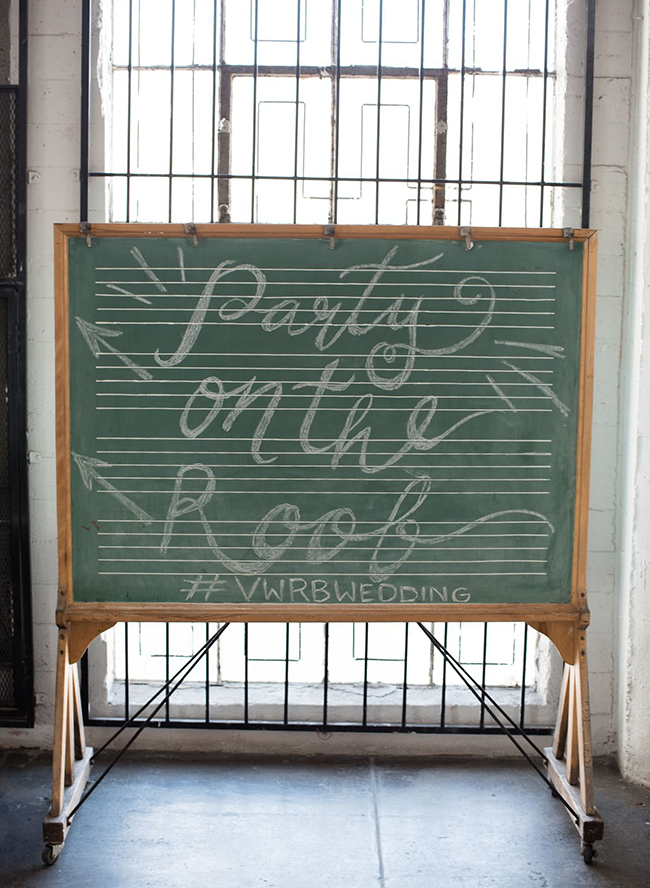 Party
on the
Roof
#VWRBWEDDING